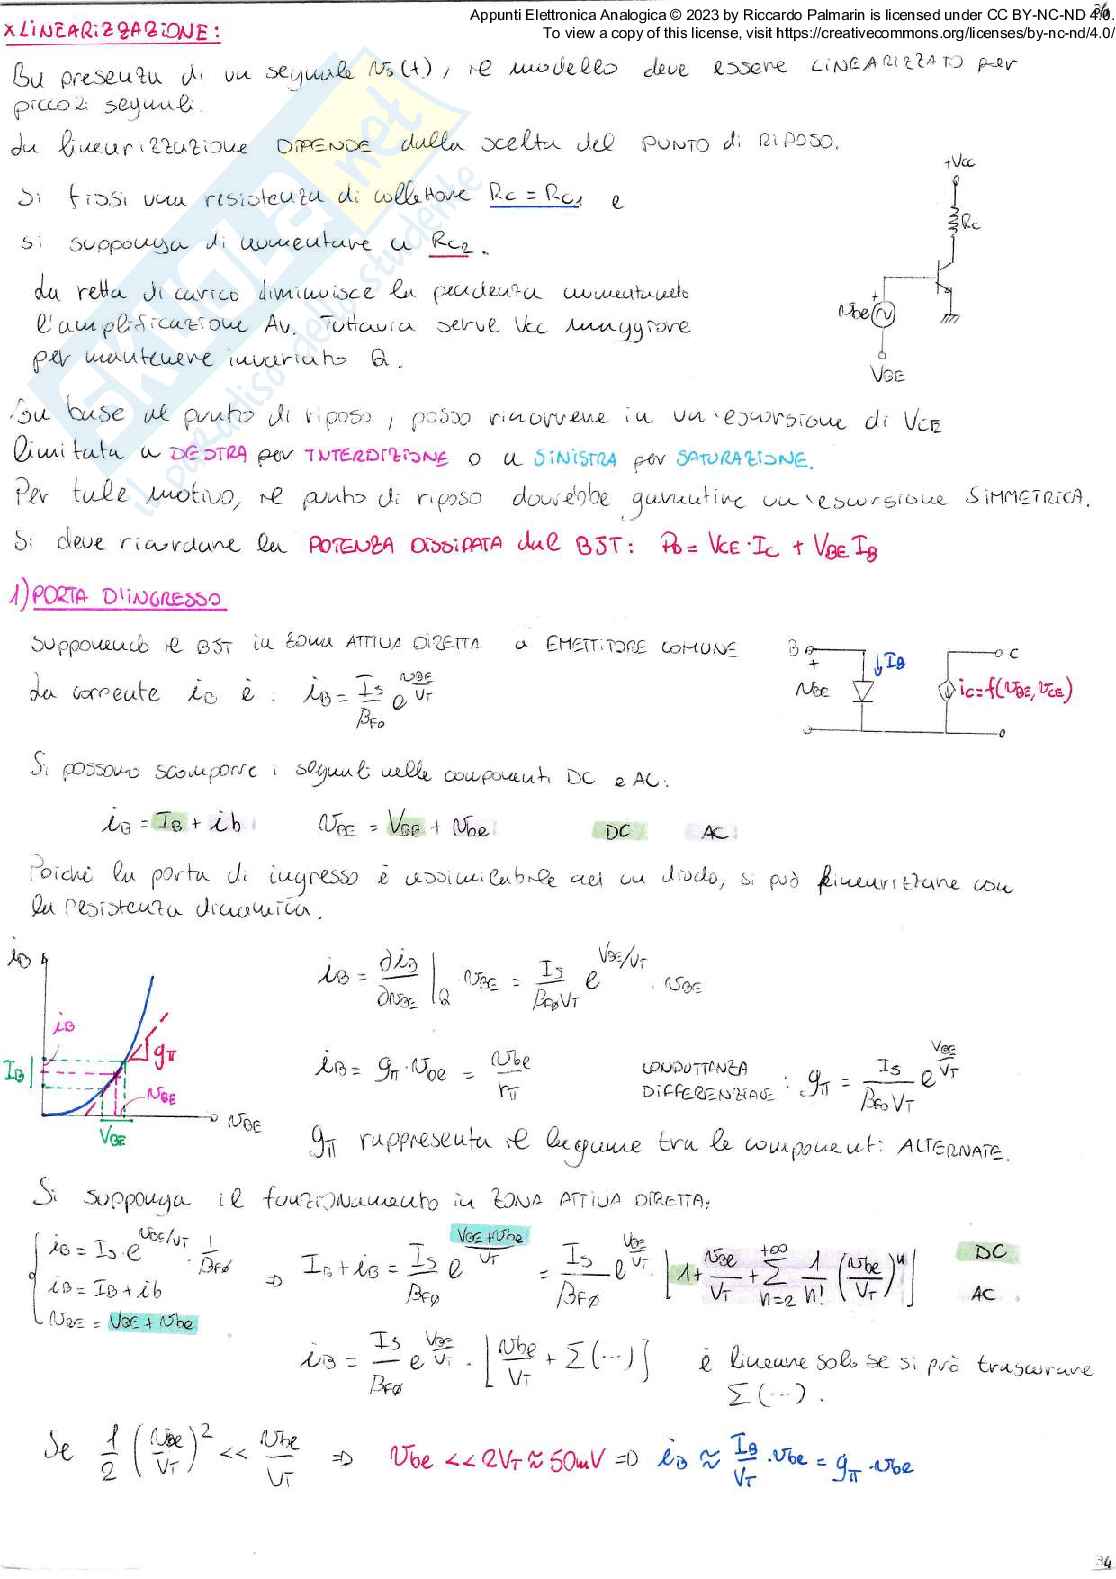 Appunti Elettronica Analogica © 2023 by Riccardo Palmarin is licensed under CC BY-NC-ND 4.0.
To view a copy of this license, visit https://creativecommons.org/licenses/by-nc-nd/4.0/
x LINEARIZZAZIONE:
In presenza di un segnale vs(t), il modello deve essere LINEARIZZATO per
piccoli segnali.
La linearizzazione DIPENDE dalla scelta del PUNTO di RIPOSO.
Si fissi una resistenza di collettore Rc = Rc1 e
si supponga di aumentare a Rc2.
La retta di carico diminuisce la pendenza aumentando
l'amplificazione Av. Tuttavia serve Vcc maggiore
per mantenere invariato Q.
+Vcc
Rc
+
vbe
VBE
In base al punto di riposo, posso rincorrere in un'escursione di VCE
limitata a DESTRA per INTERDIZIONE o a SINISTRA per SATURAZIONE.
Per tale motivo, il punto di riposo dovrebbe garantire un'escursione SIMMETRICA.
Si deve ricordare la POTENZA DISSIPATA dal BJT: PD = VCE · IC + VBE IB
1) PORTA D'INGRESSO
Supponendo il BJT in zona ATTIVA DIRETTA a EMETTITORE COMUNE
La corrente iB è: iB = Is/βF0 e^(vBE/VT)
B + vBE IB C ic = f(vBE, vCE)
Si possono scomporre i segnali nelle componenti DC e AC:
iB = IB + ib vBE = VBE + vbe DC AC
Poiché la porta di ingresso è assimilabile ad un diodo, si può linearizzare con
la resistenza dinamica.
iB iB IB gπ vBE VBE vBE
iB = ∂iB/∂vBE |Q · vBE = Is/(βF0 VT) e^(VBE/VT) · vBE
iB = gπ · vbe = vbe/rπ CONDUTTANZA DIFFERENZIALE: gπ = Is/(βF0 VT) e^(VBE/VT)
gπ rappresenta il legame tra le componenti ALTERNATE.
Si supponga il funzionamento in ZONA ATTIVA DIRETTA:
{ iB = Is · e^(vBE/VT) · 1/βF0
iB = IB + ib
vBE = VBE + vbe
⇒ IB + iB = Is/βF0 e^((VBE + vbe)/VT) = Is/βF0 e^(VBE/VT) · [1 + vbe/VT + Σ(n=2, +∞) 1/n! (vbe/VT)^n] DC AC
iB = Is/βF0 e^(VBE/VT) · [vbe/VT + Σ(...)] è lineare solo se si può trascurare
Σ(...).
Se 1/2 (vbe/VT)^2 << vbe/VT ⇒ vbe << 2VT ≈ 50mV ⇒ iB ≈ IB/VT · vbe = gπ · vbe
34